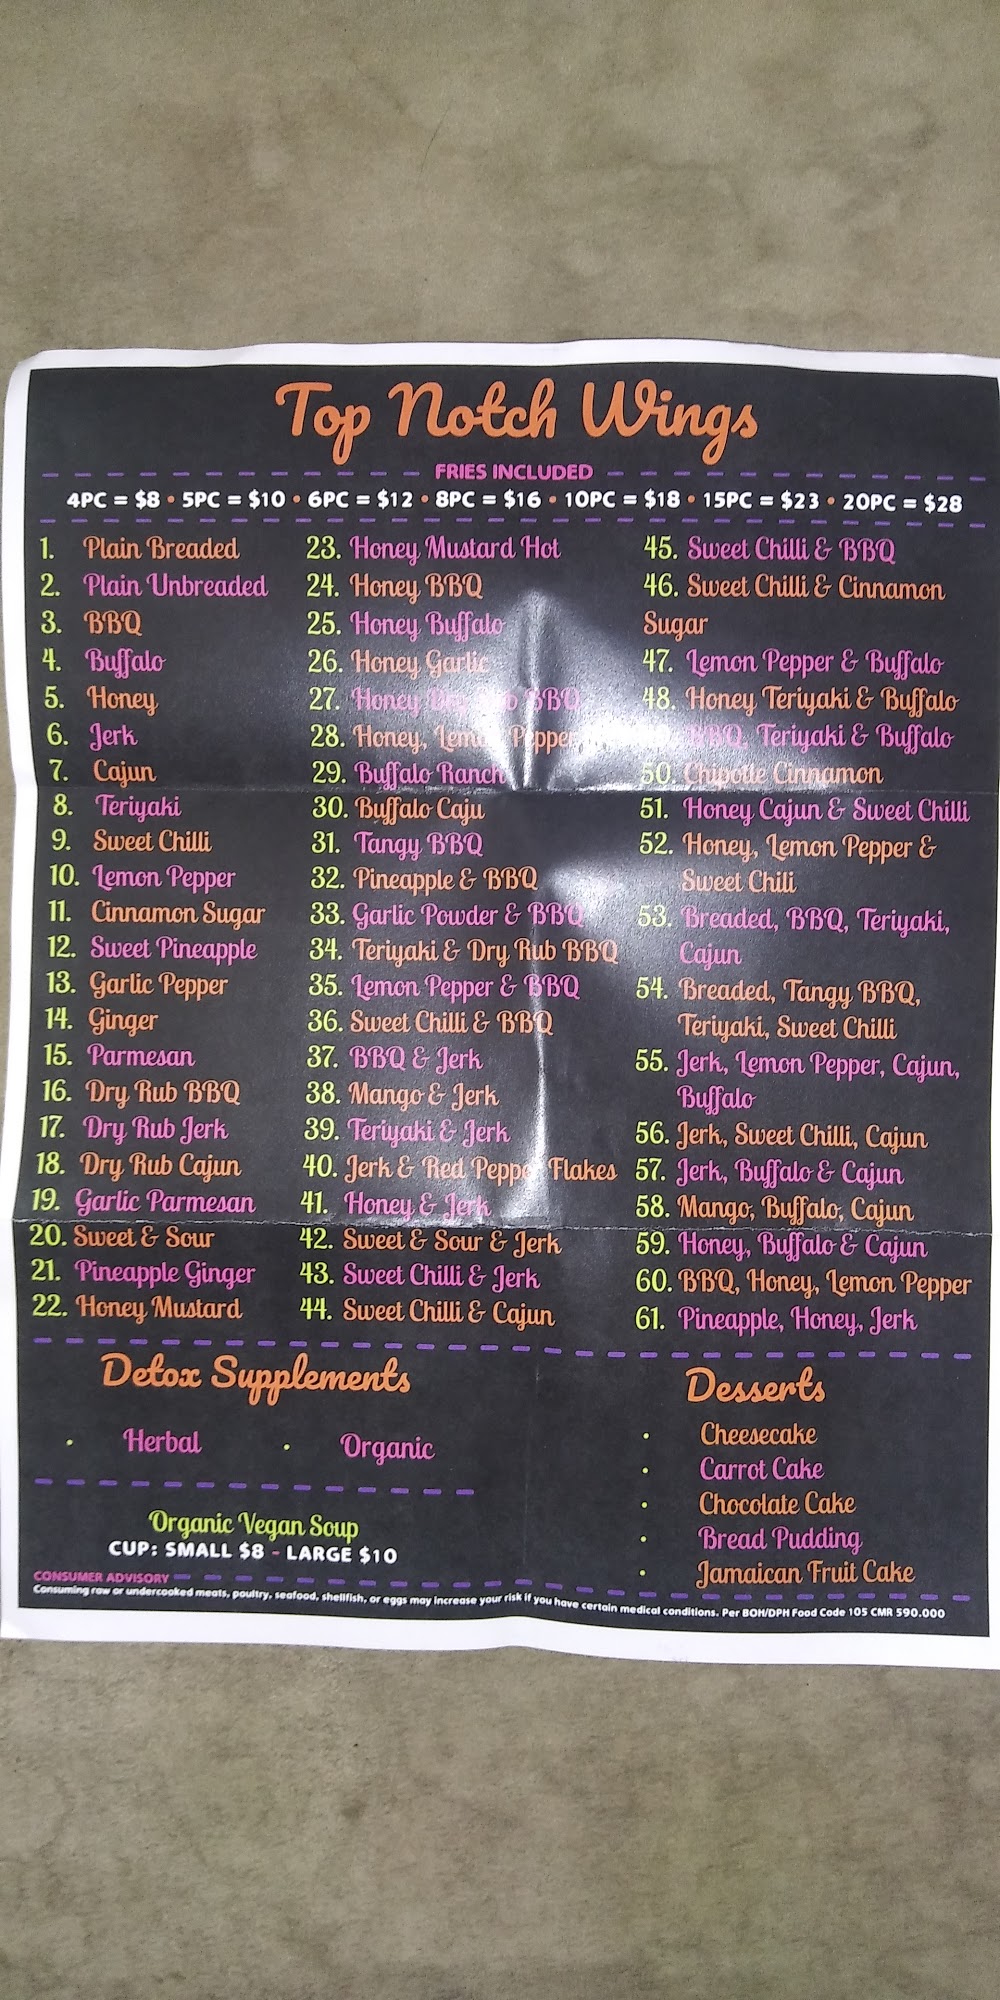 Top Notch Wings
FRIES INCLUDED
4PC = $8 • 5PC = $10 • 6PC = $12 • 8PC = $16 • 10PC = $18 • 15PC = $23 • 20PC = $28
1. Plain Breaded
2. Plain Unbreaded
3. BBQ
4. Buffalo
5. Honey
6. Jerk
7. Cajun
8. Teriyaki
9. Sweet Chilli
10. Lemon Pepper
11. Cinnamon Sugar
12. Sweet Pineapple
13. Garlic Pepper
14. Ginger
15. Parmesan
16. Dry Rub BBQ
17. Dry Rub Jerk
18. Dry Rub Cajun
19. Garlic Parmesan
20. Sweet & Sour
21. Pineapple Ginger
22. Honey Mustard
23. Honey Mustard Hot
24. Honey BBQ
25. Honey Buffalo
26. Honey Garlic
27. Honey BBQ
28. Honey, Lemon Pepper
29. Buffalo Ranch
30. Buffalo Caju
31. Tangy BBQ
32. Pineapple & BBQ
33. Garlic Powder & BBQ
34. Teriyaki & Dry Rub BBQ
35. Lemon Pepper & BBQ
36. Sweet Chilli & BBQ
37. BBQ & Jerk
38. Mango & Jerk
39. Teriyaki & Jerk
40. Jerk & Red Pepper Flakes
41. Honey & Jerk
42. Sweet & Sour & Jerk
43. Sweet Chilli & Jerk
44. Sweet Chilli & Cajun
45. Sweet Chilli & BBQ
46. Sweet Chilli & Cinnamon
Sugar
47. Lemon Pepper & Buffalo
48. Honey Teriyaki & Buffalo
BBQ, Teriyaki & Buffalo
50. Chipotle Cinnamon
51. Honey Cajun & Sweet Chilli
52. Honey, Lemon Pepper &
Sweet Chili
53. Breaded, BBQ, Teriyaki,
Cajun
54. Breaded, Tangy BBQ,
Teriyaki, Sweet Chilli
55. Jerk, Lemon Pepper, Cajun,
Buffalo
56. Jerk, Sweet Chilli, Cajun
57. Jerk, Buffalo & Cajun
58. Mango, Buffalo, Cajun
59. Honey, Buffalo & Cajun
60. BBQ, Honey, Lemon Pepper
61. Pineapple, Honey, Jerk
Detox Supplements
• Herbal • Organic
Organic Vegan Soup
CUP: SMALL $8 - LARGE $10
Desserts
• Cheesecake
• Carrot Cake
• Chocolate Cake
• Bread Pudding
• Jamaican Fruit Cake
CONSUMER ADVISORY
Consuming raw or undercooked meats, poultry, seafood, shellfish, or eggs may increase your risk if you have certain medical conditions. Per BOH/DPH Food Code 105 CMR 590.000